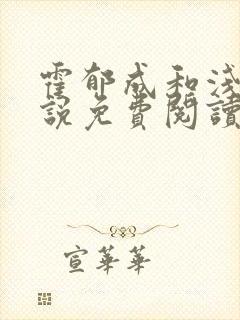 霍郁成和淺
說免費閱讀
宣華華